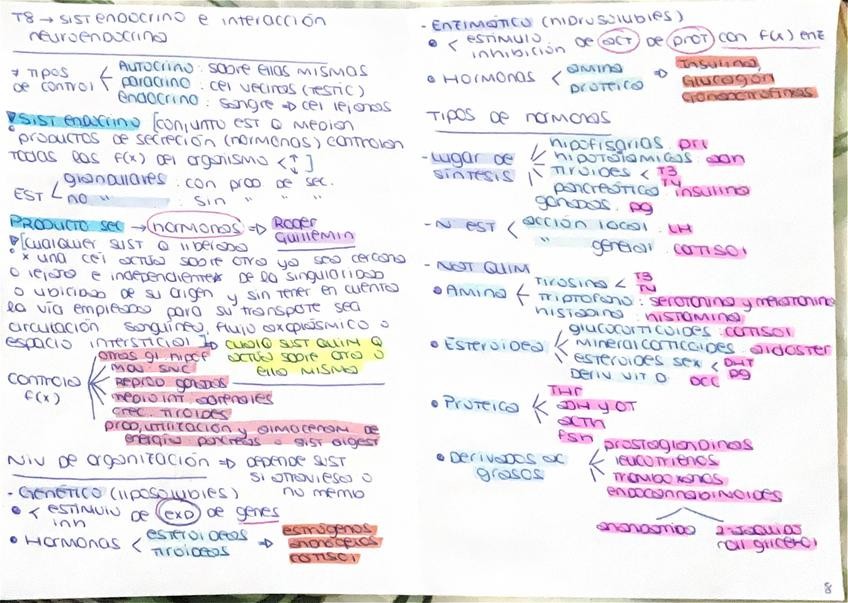 T8 → SIST ENDOCRINO e INTERACCIÓN
NEUROENDOCRINO
→ TIPOS DE CONTROL < AUTOCRINO: SOBRE ELLAS MISMAS
PARACRINO: CEL VECINAS (TESTIC)
ENDOCRINO: SANGRE → CEL LEJANAS
SIST ENDOCRINO [CONJUNTO EST Q MEDIAN
PRODUCTOS DE SECRECIÓN (HORMONAS) CONTROLAN
TODAS LAS F(X) DEL ORGANISMO < ↑↓ ]
EST < GLANDULARES: CON PROD DE SEC.
NO " SIN " "
PRODUCTO SEC → HORMONAS ⇒ ROGER
GUILLEMIN
[CUALQUIER SIST Q LIBERADA
X UNA CEL ACTÚA SOBRE OTRA YA SEA CERCANA
O LEJANA E INDEPENDIENTE DE LA SINGULARIDAD
O UBICIDAD DE SU ORIGEN Y SIN TENER EN CUENTA
LA VÍA EMPLEADA PARA SU TRANSPORTE SEA
CIRCULACIÓN SANGUÍNEA, FLUJO AXOPLÁSMICO O
ESPACIO INTERSTICIAL] ⇒ CUALQ SIST QUIM Q
ACTÚA SOBRE OTRA O
ELLA MISMA
CONTROLA F(X) < OTRAS GL HIPOF
MAD SNC
REPROD GONADAS
MEDIO INT. ADRENALES
CREC. TIROIDES
PROD, UTILIZACIÓN Y ALMACENAM DE
ENERGÍA: PÁNCREAS O SIST DIGEST
NIV DE ORGANIZACIÓN ⇒ DEPENDE SIST
SI ATRAVIESA O
NO MEMB
- GENÉTICO (LIPOSOLUBLES)
• < ESTIMULU DE EXP DE GENES
INH
• HORMONAS < ESTEROIDEAS ⇒ ESTRÓGENOS
TIROIDEAS ANDRÓGENOS
CORTISOL
- ENZIMÁTICO (HIDROSOLUBLES)
• < ESTÍMULO DE ACT DE PROT CON F(X) ENZ
INHIBICIÓN
• HORMONAS < AMINA ⇒ INSULINA
PROTEICA GLUCAGÓN
GONADOTROFINAS
TIPOS DE HORMONAS
- LUGAR DE SÍNTESIS < HIPOFISARIAS. PRL
HIPOTALÁMICAS
TIROIDES < T3
T4
PANCREÁTICA: INSULINA
GONADAS. PG
- N EST < ACCIÓN LOCAL: LH
" GENERAL: CORTISOL
- NAT QUIM
• AMINA < TIROSINA < T3
T4
TRIPTÓFANO: SEROTONINA Y MELATONINA
HISTIDINA: HISTAMINA
• ESTEROIDEA < GLUCOCORTICOIDES: CORTISOL
MINERALCORTICOIDES: ALDOSTER
ESTEROIDES SEX < DHT
PG
DERIV VIT D:
• PROTEICA < THR
ADH Y OT
ACTH
FSH
• DERIVADOS AC GRASOS < PROSTAGLANDINAS
LEUCOTRIENOS
TROMBOXANOS
ENDOCANNABINOIDES
ANANDAMIDA
8